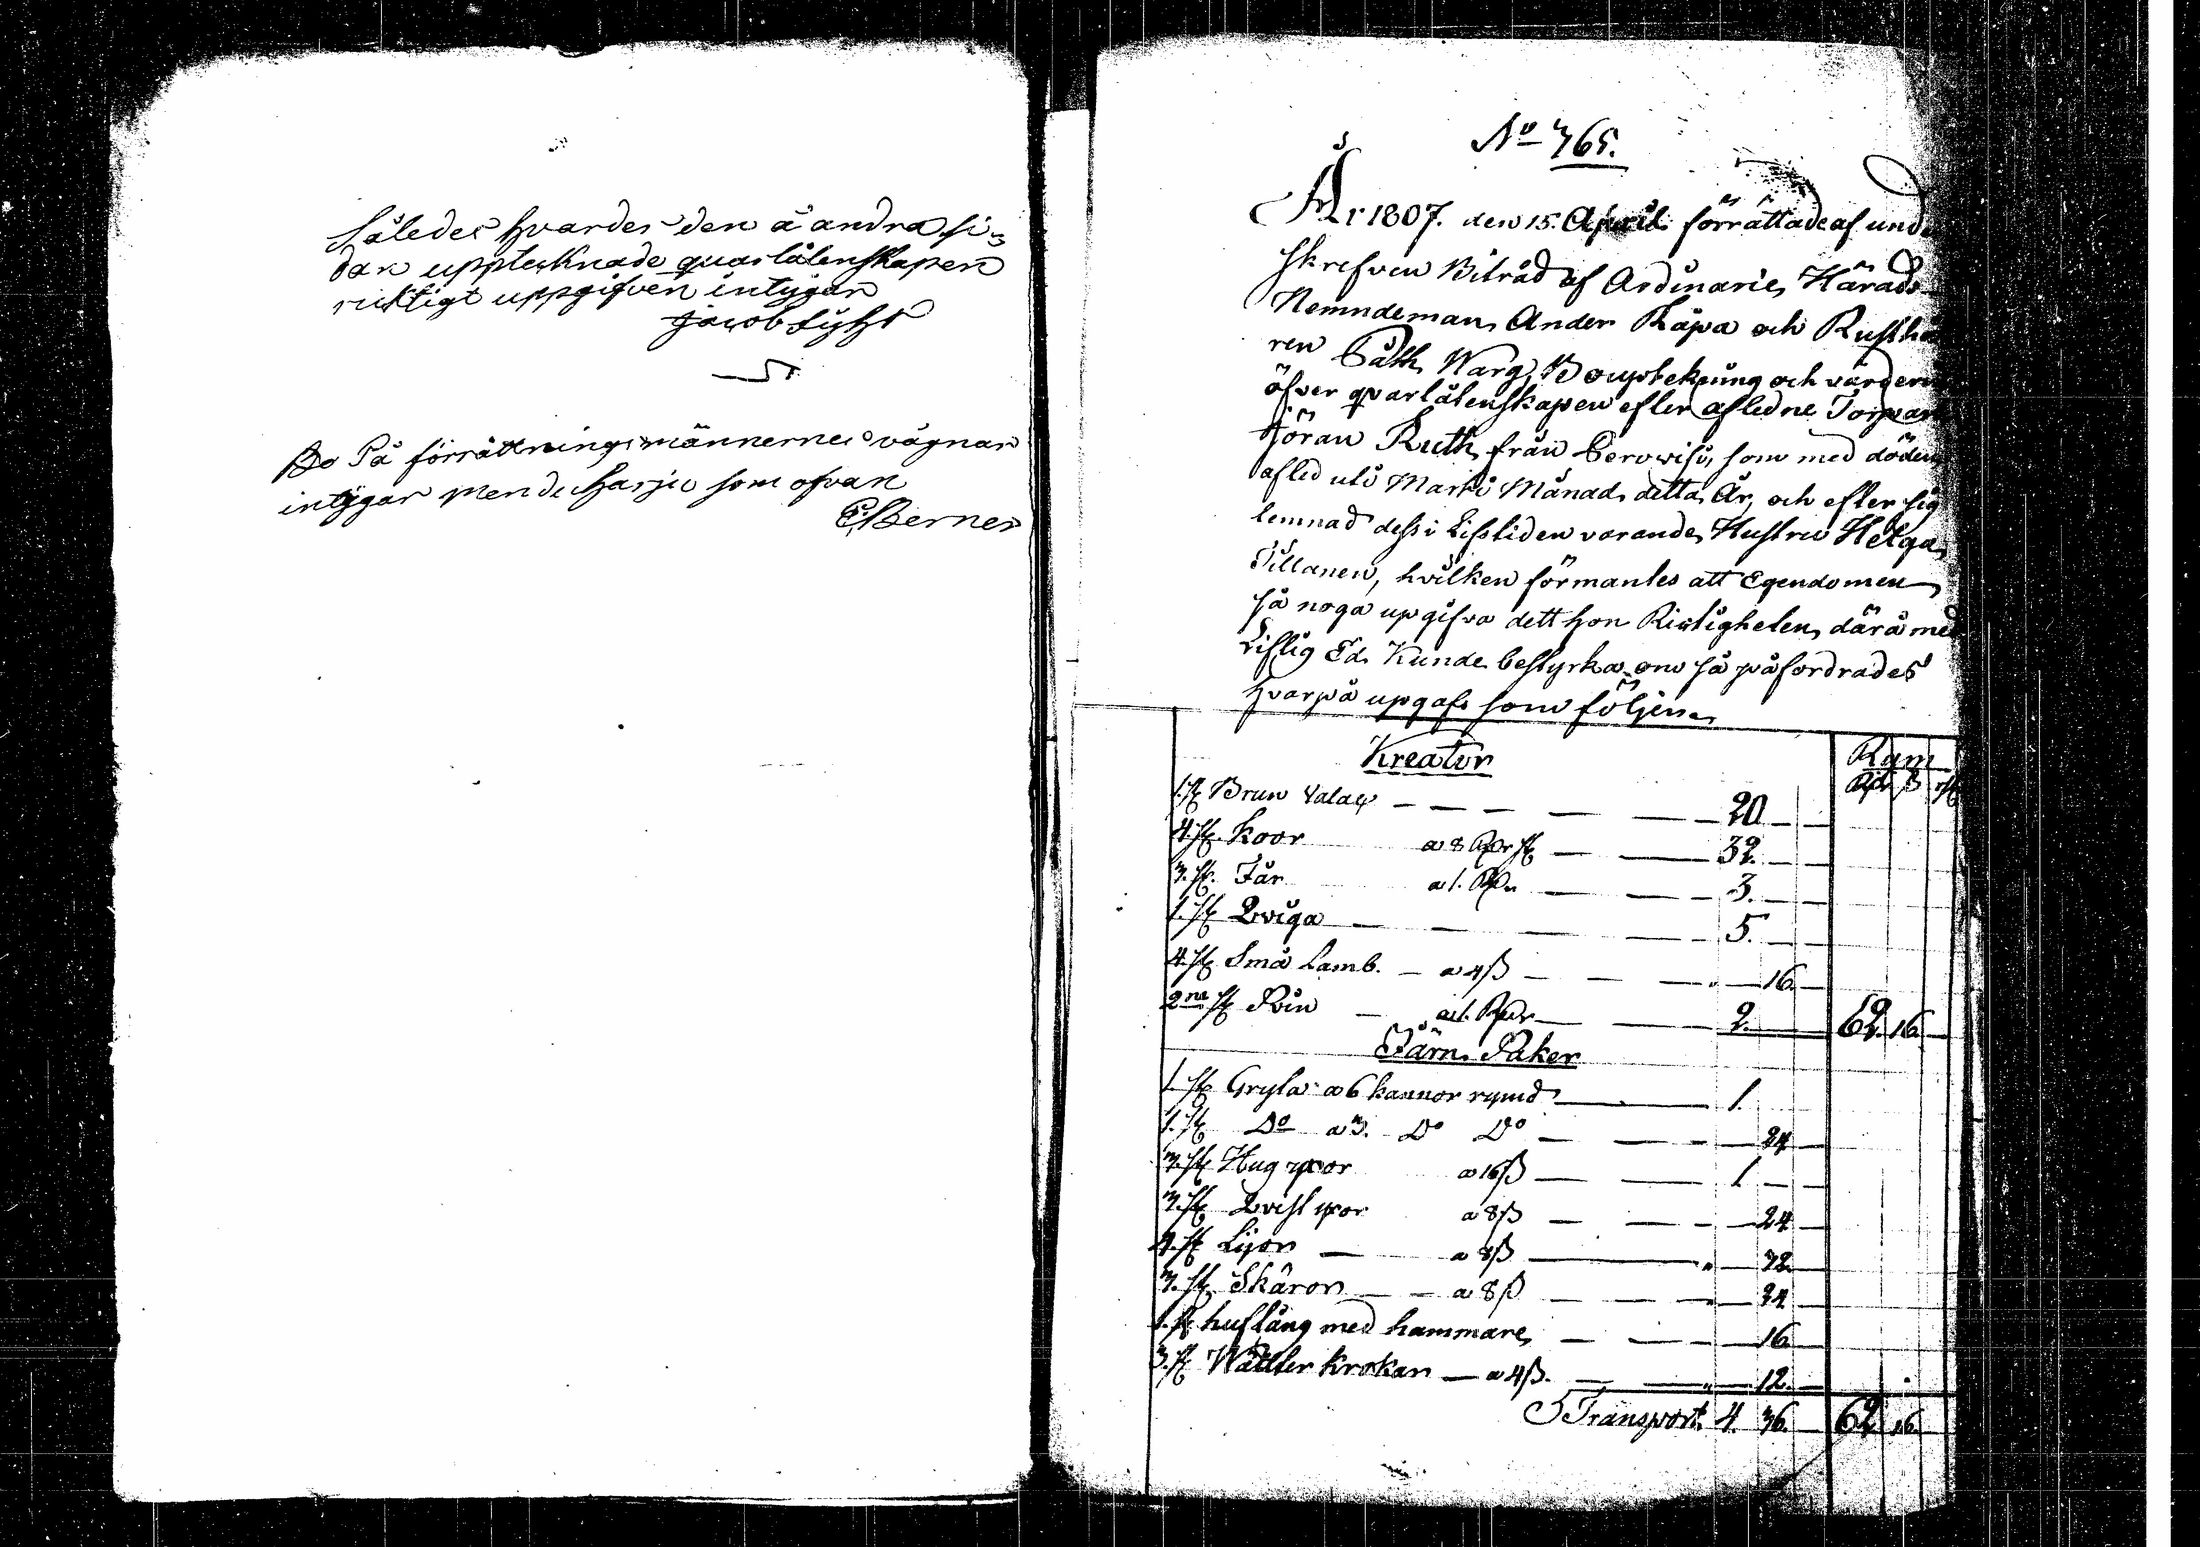 således hvardes den å andra si-
dan upptecknade quarlåtenskapen
riktigt uppgifven intygar
Jacob Lyht
På förrättningsmännernes vägnar
intygar som ofvan
E: Berner
No 365.
År 1807. den 15. April förrättade af und
skrefven Biträd af Ordinarie Härads
Nemndeman Ander Räpa och Rusthå
ren Påth Warg, Bouptekning och värdern
öfver qvarlåtenskapen efter afledne Torpar
Jöran Ruth från Perowisi, som med döden
afled uti Marti Månad detta År, och efter sig
lemnad dess i Lifstiden varande Hustru Helga
Tillanen, hvilken förmantes att Egendomen
så noga upgifva dett hon Ricktigheten därå med
Liflig Ed Kunde bestyrka om så påfordrades
hvarpå upgafs som följer
Kreatur Rgm
Rd ß rst
1. st Brun Valack — — — 20
4. st. Koor a 8 Rdr st — 32.
3. st. Får a 1. Rdr — 3.
1. st Qviga — — 5.
4. st Små Lamb. — a 4 ß — — 16.
2ne st Svin — a 1. Rdr — 2. 62. 16.
Järn Saker
1. st Gryta a 6 kannor rymd — 1.
1. st Do a 3. Do Do — 24
3. st Hug yxor a 16 ß — 1
3. st Qvist yxor a 8 ß — 24
4. st Lijor — a 8 ß — 32
3. st Skäror — — a 8 ß — 24
1. st huftång med hammare — 16
3. st Wätter krokar — a 4 ß. — 12.
Transport 4. 36. 62 16.